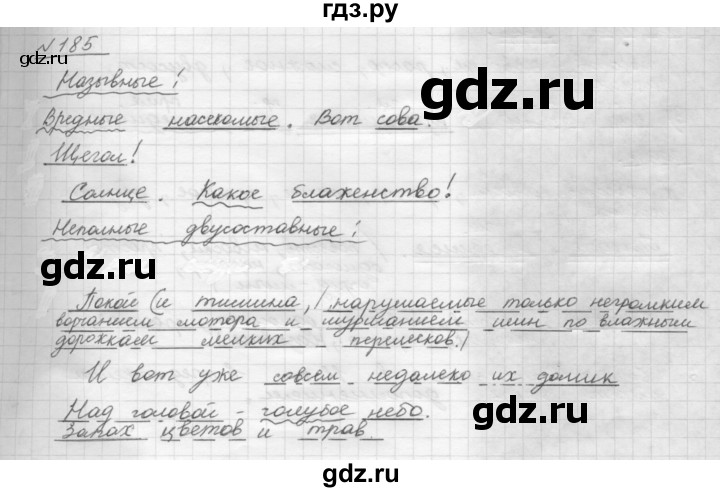 гдз.ру
№185
Назывные!
Вредные насекомые. Вот сова.
Щегол!
Солнце. Какое блаженство!
Неполные двусоставные!
Покой (и тишина, / нарушаемые только негромким
ворчанием мотора и шуршанием шин по влажным
дорожкам мелких перелесков. /
И вот уже совсем недалеко их домик
Над головой - голубое небо.
Запах цветов и трав
gdz.ru
gdz.ru
gdz.ru
gdz.ru
gdz.ru